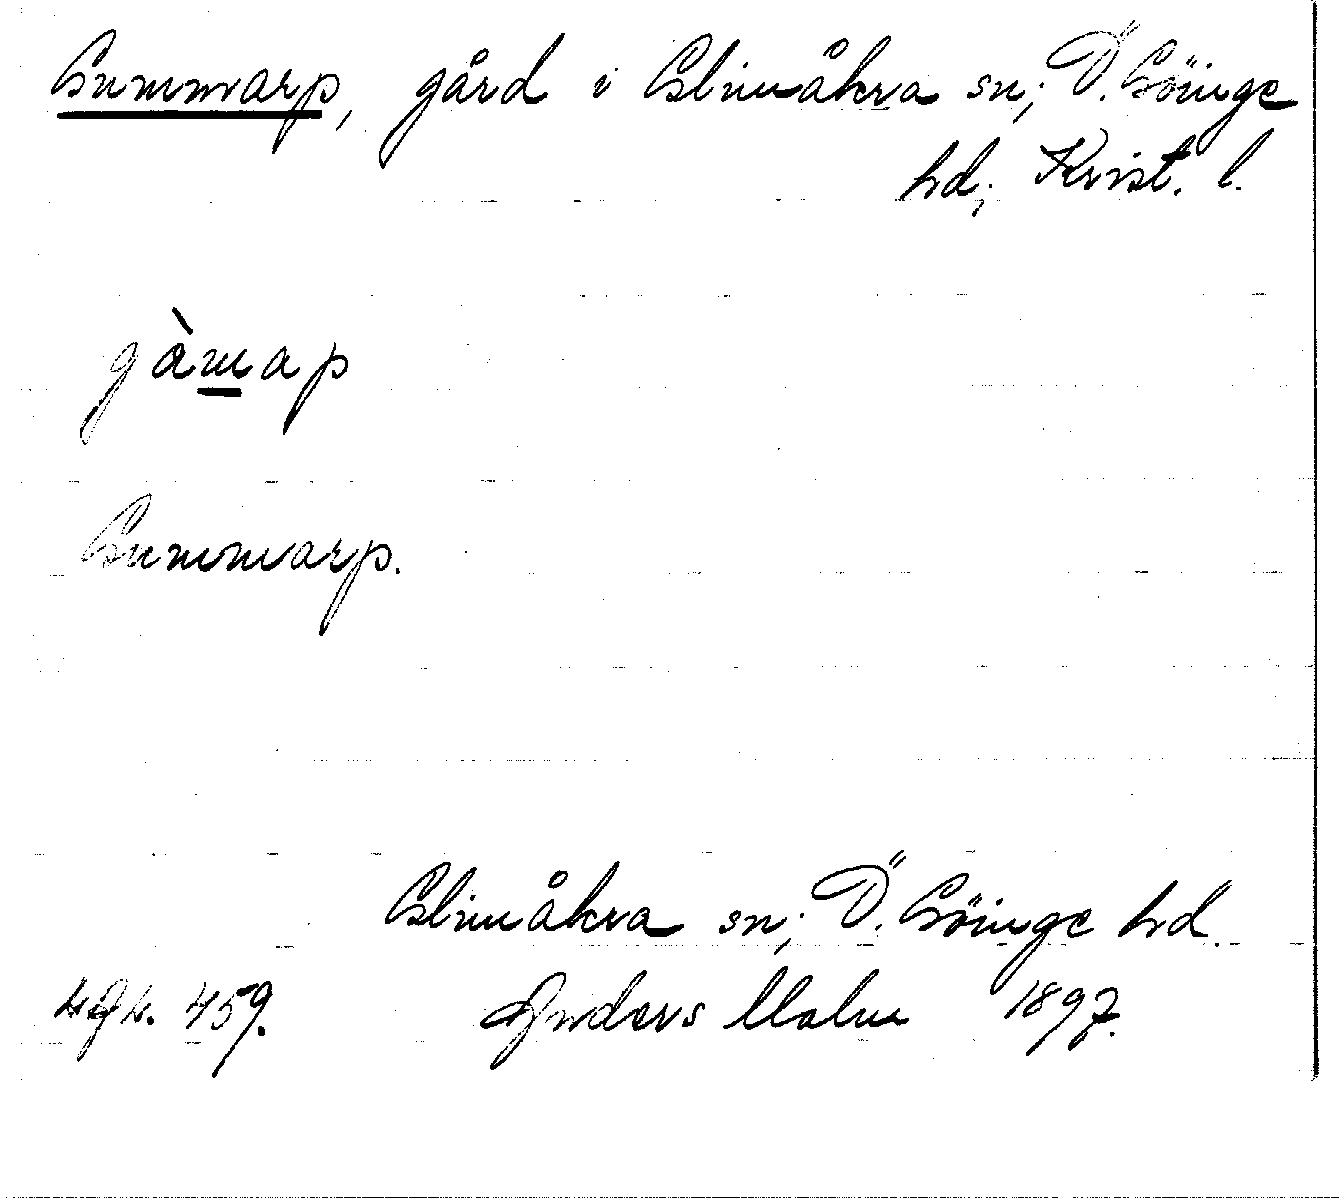 Gummarp, gård i Glimåkra sn; Ö. Göinge
hd; Krist. l.
gàmap
Gummarp.
Glimåkra sn; Ö. Göinge hd.
459. Anders Malm 1897.